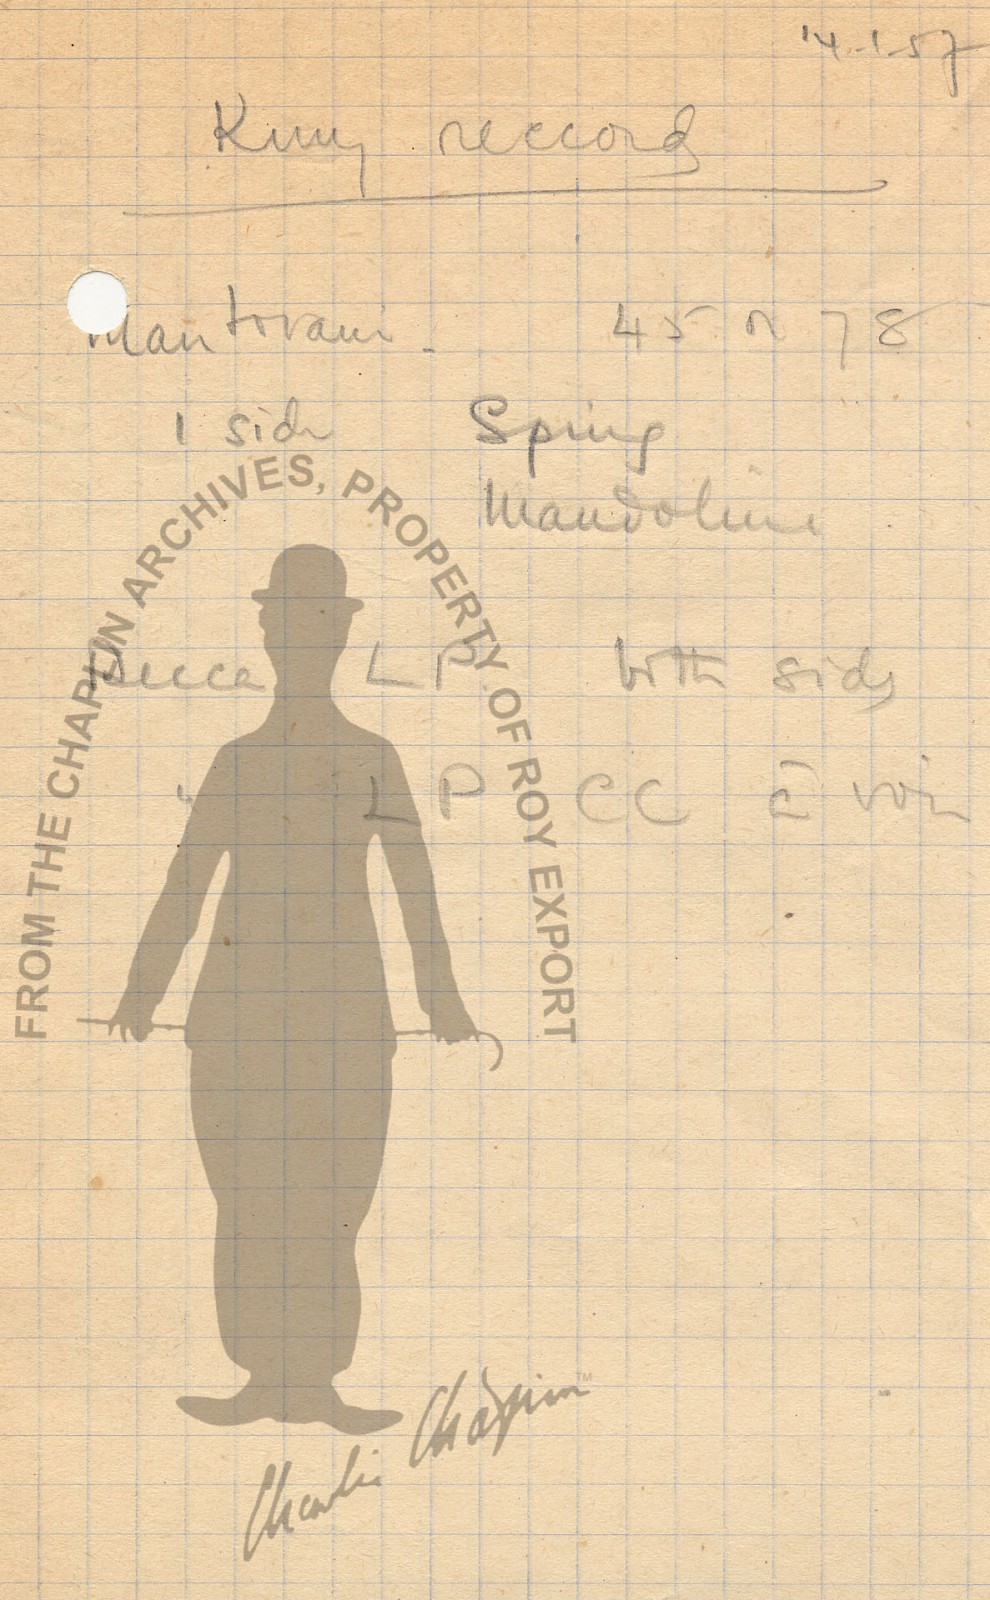 14-1-57
King reccord
Mantovani - 45 or 78
1 side Spring
Mandoline
Decca LP both sides
" LP CC à voir
FROM THE CHAPLIN ARCHIVES, PROPERTY OF ROY EXPORT
Charlie Chaplin™